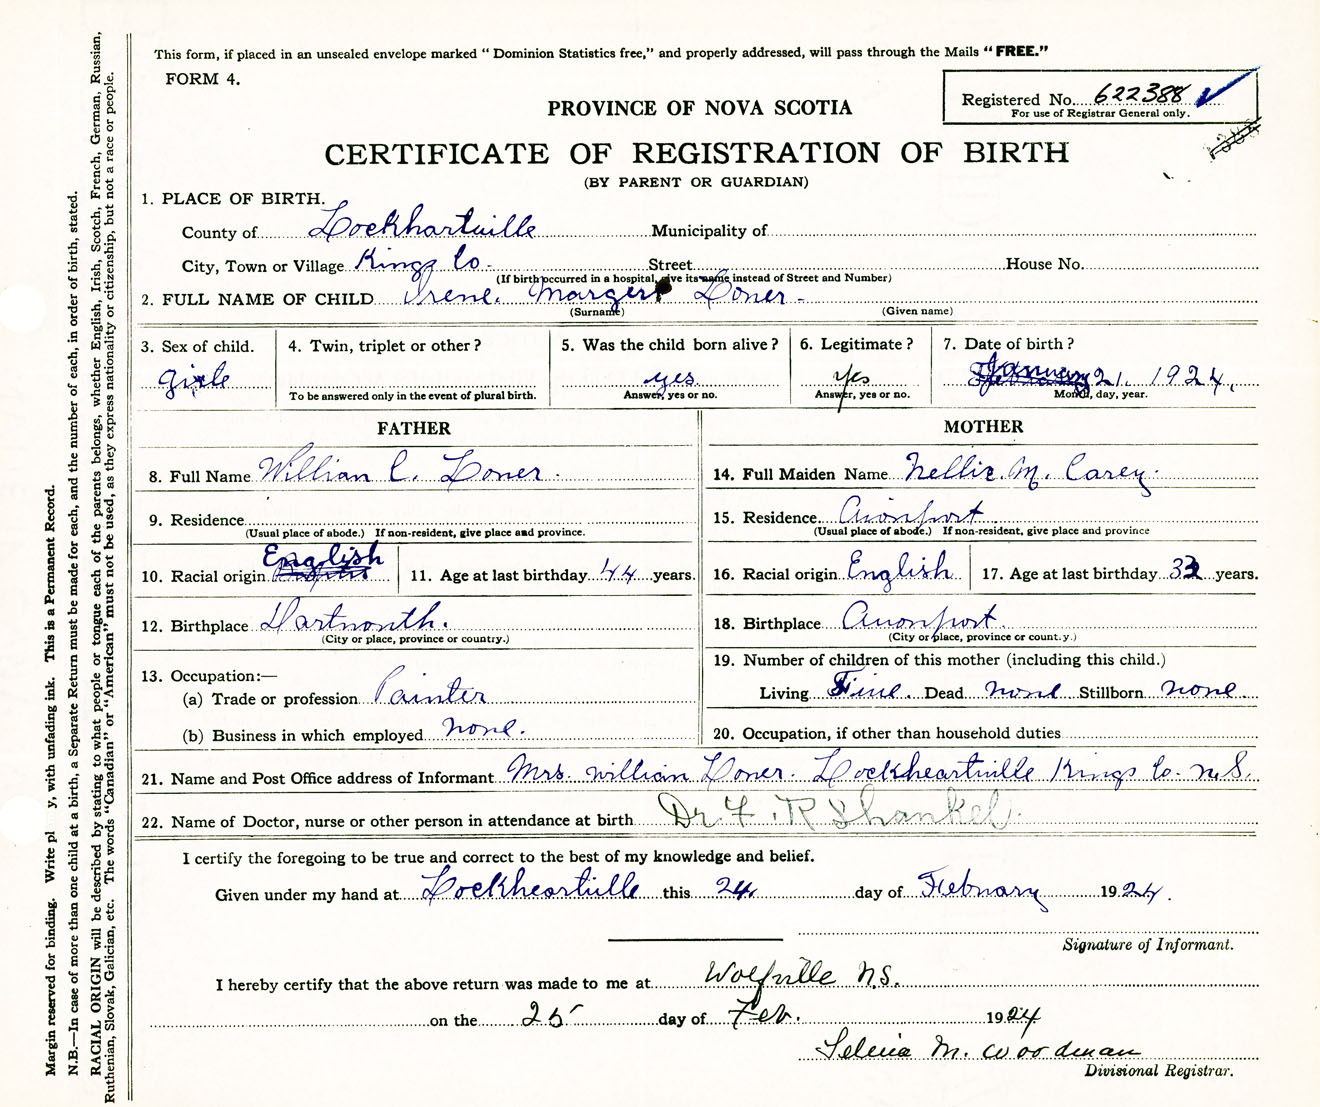 This form, if placed in an unsealed envelope marked " Dominion Statistics free," and properly addressed, will pass through the Mails "FREE."
FORM 4.
Registered No. 622388
For use of Registrar General only.
PROVINCE OF NOVA SCOTIA
CERTIFICATE OF REGISTRATION OF BIRTH
(BY PARENT OR GUARDIAN)
1. PLACE OF BIRTH.
County of Lockhartville Municipality of
City, Town or Village Kings Co. Street House No.
(If birth occurred in a hospital, give its name instead of Street and Number)
2. FULL NAME OF CHILD Irene. Margery Loner -
(Surname) (Given name)
3. Sex of child. 4. Twin, triplet or other? 5. Was the child born alive? 6. Legitimate? 7. Date of birth?
girle yes yes January 21. 1924.
To be answered only in the event of plural birth. Answer, yes or no. Answer, yes or no. Month, day, year.
FATHER MOTHER
8. Full Name Willian C. Loner. 14. Full Maiden Name Nellie. M. Carey.
9. Residence 15. Residence Avonport
(Usual place of abode.) If non-resident, give place and province. (Usual place of abode.) If non-resident, give place and province
10. Racial origin English 11. Age at last birthday 44 years. 16. Racial origin English 17. Age at last birthday 33 years.
12. Birthplace Dartmonth. 18. Birthplace Avonport.
(City or place, province or country.) (City or place, province or count.y.)
13. Occupation:— 19. Number of children of this mother (including this child.)
(a) Trade or profession Painter Living Five. Dead none Stillborn none
(b) Business in which employed none. 20. Occupation, if other than household duties
21. Name and Post Office address of Informant Mrs. William Loner. Lockheartville Kings Co. N.S.
22. Name of Doctor, nurse or other person in attendance at birth Dr. F. R Shankel.
I certify the foregoing to be true and correct to the best of my knowledge and belief.
Given under my hand at Lockheartville this 24 day of February 1924.
Signature of Informant.
I hereby certify that the above return was made to me at Wolfville N.S.
on the 25 day of Feb. 1924
Selena M. Woodman
Divisional Registrar.
Margin reserved for binding. Write pl y, with unfading ink. This is a Permanent Record.
N.B.—In case of more than one child at a birth, a Separate Return must be made for each, and the number of each, in order of birth, stated.
RACIAL ORIGIN will be described by stating to what people or tongue each of the parents belongs, whether English, Irish, Scotch, French, German, Russian,
Ruthenian, Slovak, Galician, etc. The words "Canadian" or "American" must not be used, as they express nationality or citizenship, but not a race or people.